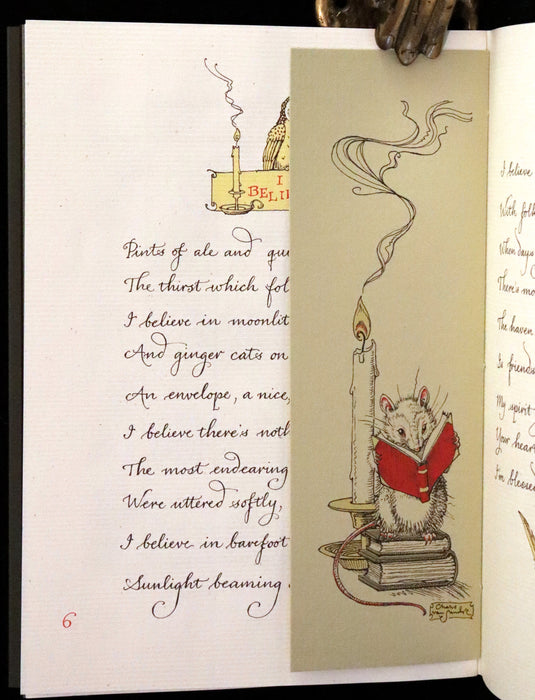 I
BELIE
Pints of ale and qu
The thirst which fol
I believe in moonlit
And ginger cats on
An envelope, a nice,
I believe there's noth
The most endearing
Were uttered softly,
I believe in barefoot
Sunlight beaming
6
Charles
van Sandwyk
I believe
With folk
When days
There's mo
The haven
Is friends
My spirit
Your hear
I'm blesse